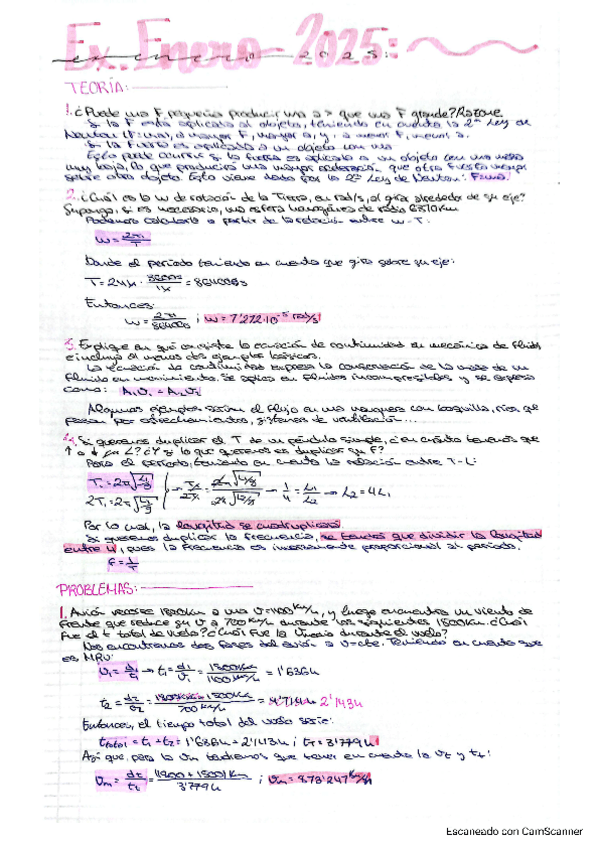 Ex. Enero - 2025:
enero 2025:
TEORÍA:
1. ¿Puede una F pequeña producir una a > que una F grande? Razone
Si la F está aplicada al objeto, teniendo en cuenta la 2ª Ley de
Newton (F=m·a), a mayor F, mayor a, y, a menor F, menor a.
Si la fuerza es aplicada a un objeto con una
Esto puede ocurrir si la fuerza es aplicada a un objeto con una masa
muy baja, lo que produciría una mayor aceleración que otra fuerza mayor
sobre otro objeto. Esto viene dado por la 2ª Ley de Newton: F=m·a.
2. ¿Cuál es la ω de rotación de la Tierra, en rad/s, al girar alrededor de su eje?
Suponga, si es necesario, una esfera homogénea de radio 6370 km
Podemos calcularla a partir de la relación entre ω - T.
ω = 2π/T
Donde el período teniendo en cuenta que gira sobre su eje:
T = 24h · 3600s/1h = 86400s
Entonces:
ω = 2π/86400s ; ω = 7'272·10⁻⁵ rad/s
3. Explique en qué consiste la ecuación de continuidad en mecánica de fluidos
e incluya al menos dos ejemplos básicos.
La ecuación de continuidad expresa la conservación de la masa de un
fluido en movimiento. Se aplica en fluidos incompresibles y se expresa
como: A₁V₁ = A₂V₂
Algunos ejemplos serían el flujo en una manguera con boquilla, ríos que
pasan por estrechamientos, sistemas de ventilación...
4. Si queremos duplicar el T de un péndulo simple, ¿en cuánto tenemos que
↑ o ↓ su L? ¿Y si lo que queremos es duplicar su F?
Para el período, teniendo en cuenta la relación entre T-L:
T₁ = 2π√(L₁/g)
2T₁ = 2π√(L₂/g) → T₁/2T₁ = 2π√(L₁/g)/2π√(L₂/g) → 1/4 = L₁/L₂ → L₂ = 4L₁
Por lo cual, la longitud se cuadruplicará
Si queremos duplicar la frecuencia, se tendrá que dividir la longitud
entre 4, pues la frecuencia es inversamente proporcional al período.
F = 1/T
PROBLEMAS:
1. Avión recorre 1800km a una v=1100 km/h, y luego encuentra un viento de
frente que reduce su v a 700 km/h durante los siguientes 1500km. ¿Cuál
fue el t total de vuelo? ¿Cuál fue la Vmedia durante el vuelo?
Nos encontramos dos fases del avión a v=cte. Teniendo en cuenta que
es MRU:
v₁ = d₁/t₁ → t₁ = d₁/v₁ = 1800km/1100km/h = 1'636h
t₂ = d₂/v₂ = 1500km/700km/h = 2'143h
Entonces, el tiempo total del vuelo sería:
t total = t₁ + t₂ = 1'636h + 2'143h ; tT = 3'779h
Así que, para la vm tendremos que tener en cuenta la dt y tt:
vm = dt/tt = (1800 + 1500)km/3'779h ; vm = 873'247 km/h
Escaneado con CamScanner